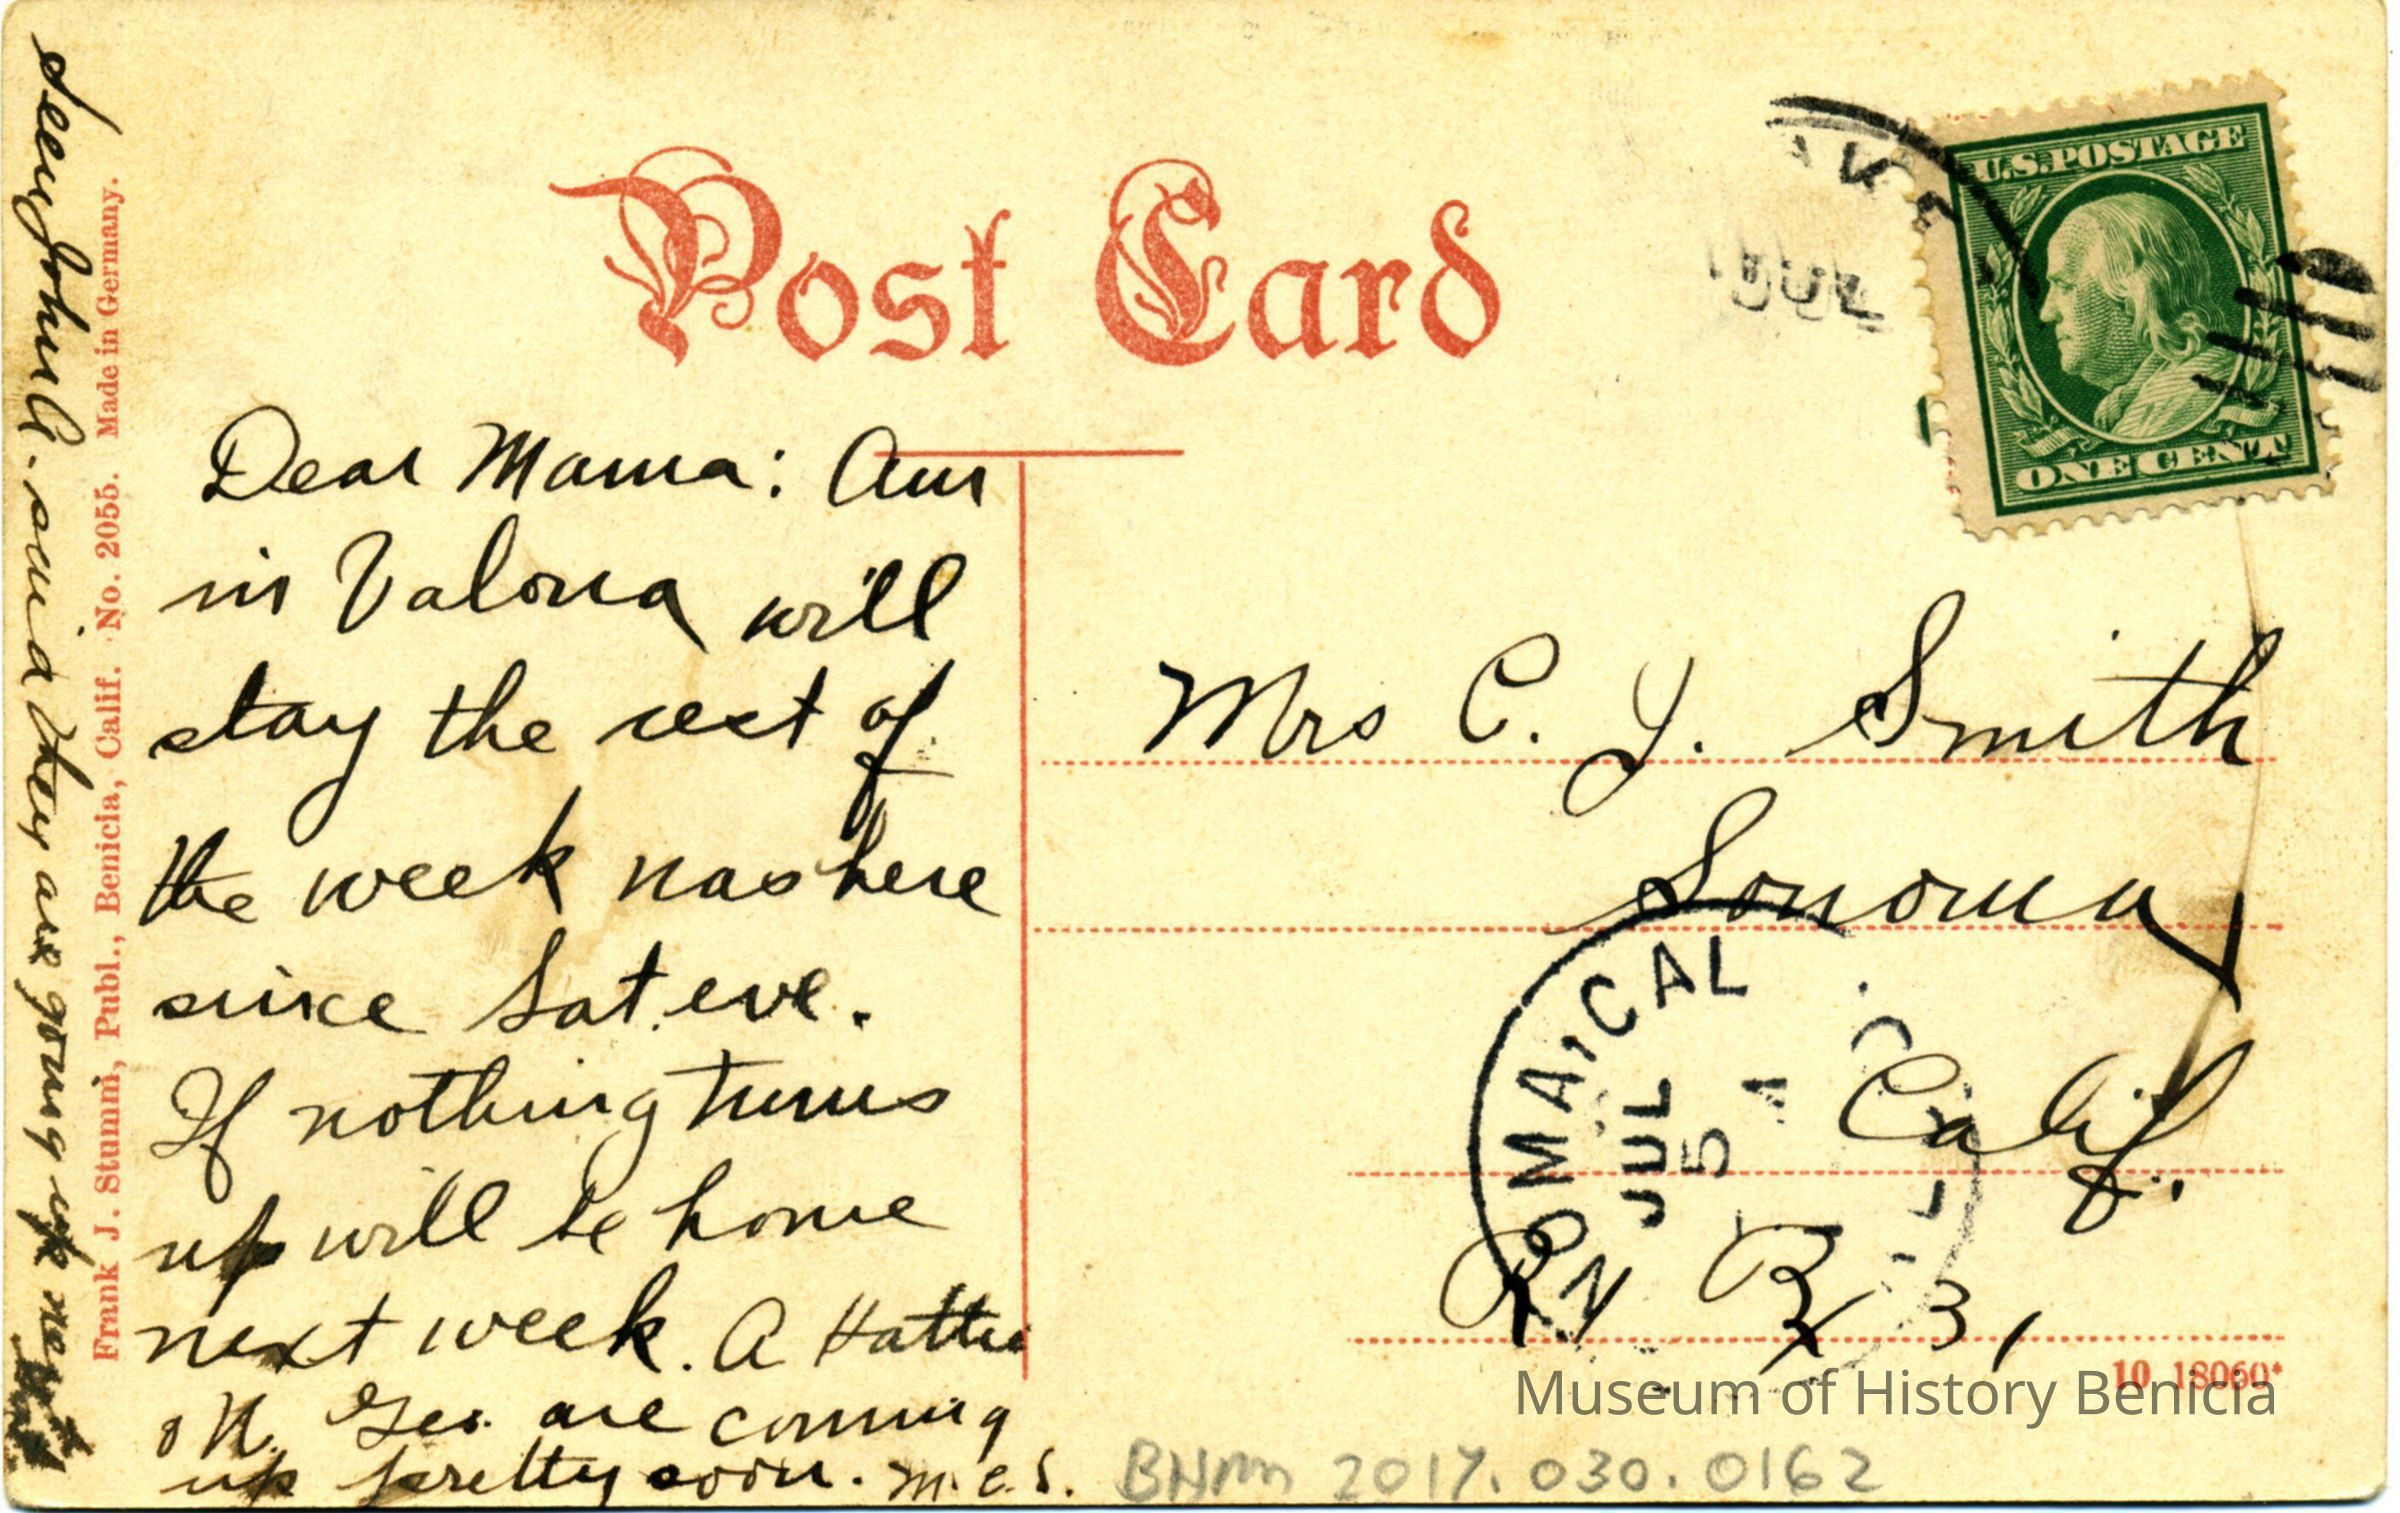 Post Card
U.S. POSTAGE
ONE CENT
JUL
Dear Mama: Am
in Valona will
stay the rest of
the week was here
since Sat. eve.
If nothing turns
up will be home
next week. A Hattie
& U. Geo. are coming
up pretty soon. M.E.S.
Seen John C. said they are going up next
Frank J. Stumm, Publ., Benicia, Calif. No. 2055. Made in Germany.
Mrs C. Y. Smith
Sonoma
Calif.
R R 31
SONOMA, CAL
JUL
5
A
10 18060*
Museum of History Benicia
BHM 2017.030.0162